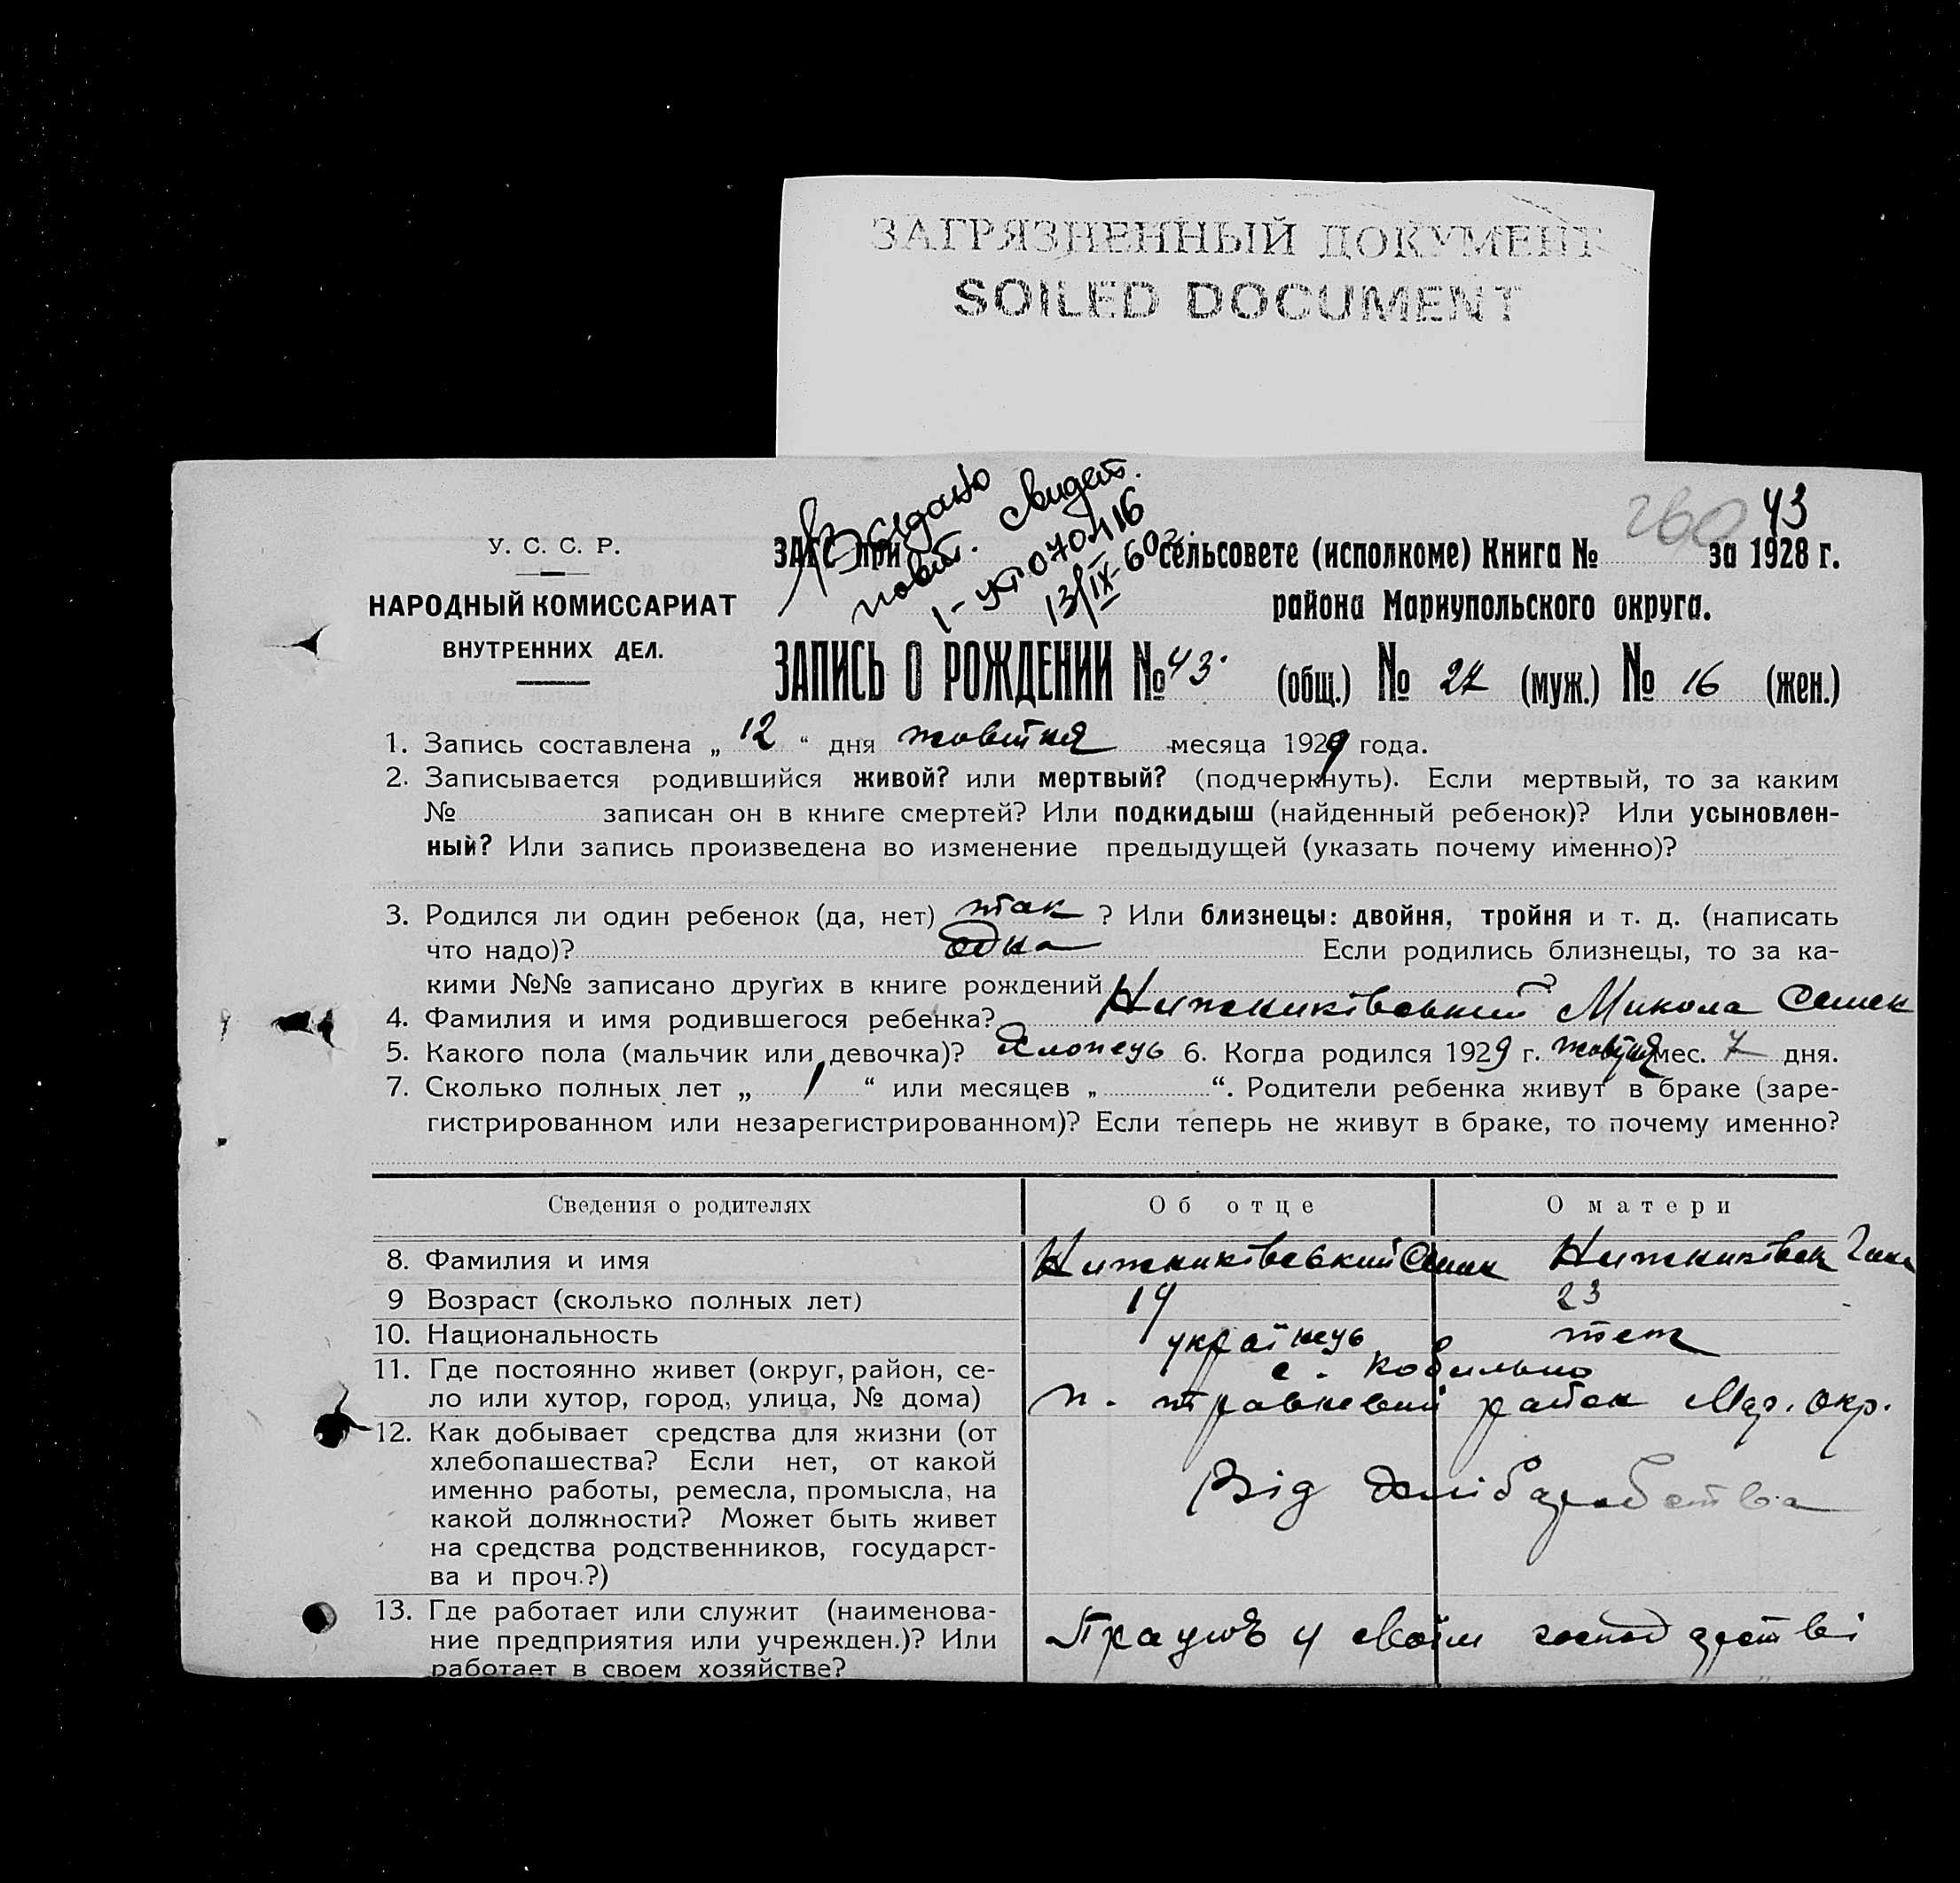 ЗАГРЯЗНЕННЫЙ ДОКУМЕНТ
SOILED DOCUMENT
43
260
Видано
повт. свидет.
1-УР 070416
13/IX-60г.
У. С. С. Р.
НАРОДНЫЙ КОМИССАРИАТ
ВНУТРЕННИХ ДЕЛ.
ЗАГС при сельсовете (исполкоме) Книга № за 1928 г.
района Мариупольского округа.
ЗАПИСЬ О РОЖДЕНИИ № 43. (общ.) № 27 (муж.) № 16 (жен.)
1. Запись составлена „ 12 “ дня жовтня месяца 1929 года.
2. Записывается родившийся живой? или мертвый? (подчеркнуть). Если мертвый, то за каким
№ записан он в книге смертей? Или подкидыш (найденный ребенок)? Или усыновлен-
ный? Или запись произведена во изменение предыдущей (указать почему именно)?
3. Родился ли один ребенок (да, нет) так ? Или близнецы: двойня, тройня и т. д. (написать
что надо)? одна Если родились близнецы, то за ка-
кими №№ записано других в книге рождений ?
4. Фамилия и имя родившегося ребенка? Нижниківський Микола Семен
5. Какого пола (мальчик или девочка)? Хлопець 6. Когда родился 1929 г. жовтня мес. 7 дня.
7. Сколько полных лет „ / “ или месяцев „ “. Родители ребенка живут в браке (заре-
гистрированном или незарегистрированном)? Если теперь не живут в браке, то почему именно?
Сведения о родителях Об отце О матери
8. Фамилия и имя Нижниківський Семен Нижниківськ Гана
9 Возраст (сколько полных лет) 19 23
10. Национальность українець теж
11. Где постоянно живет (округ, район, се- с. Кобильно
ло или хутор, город, улица, № дома) п. травневий район Мар. окр.
12. Как добывает средства для жизни (от
хлебопашества? Если нет, от какой
именно работы, ремесла, промысла, на Від хліборобства
какой должности? Может быть живет
на средства родственников, государст-
ва и проч.?)
13. Где работает или служит (наименова-
ние предприятия или учрежден.)? Или Працює у своїм господарстві
работает в своем хозяйстве?